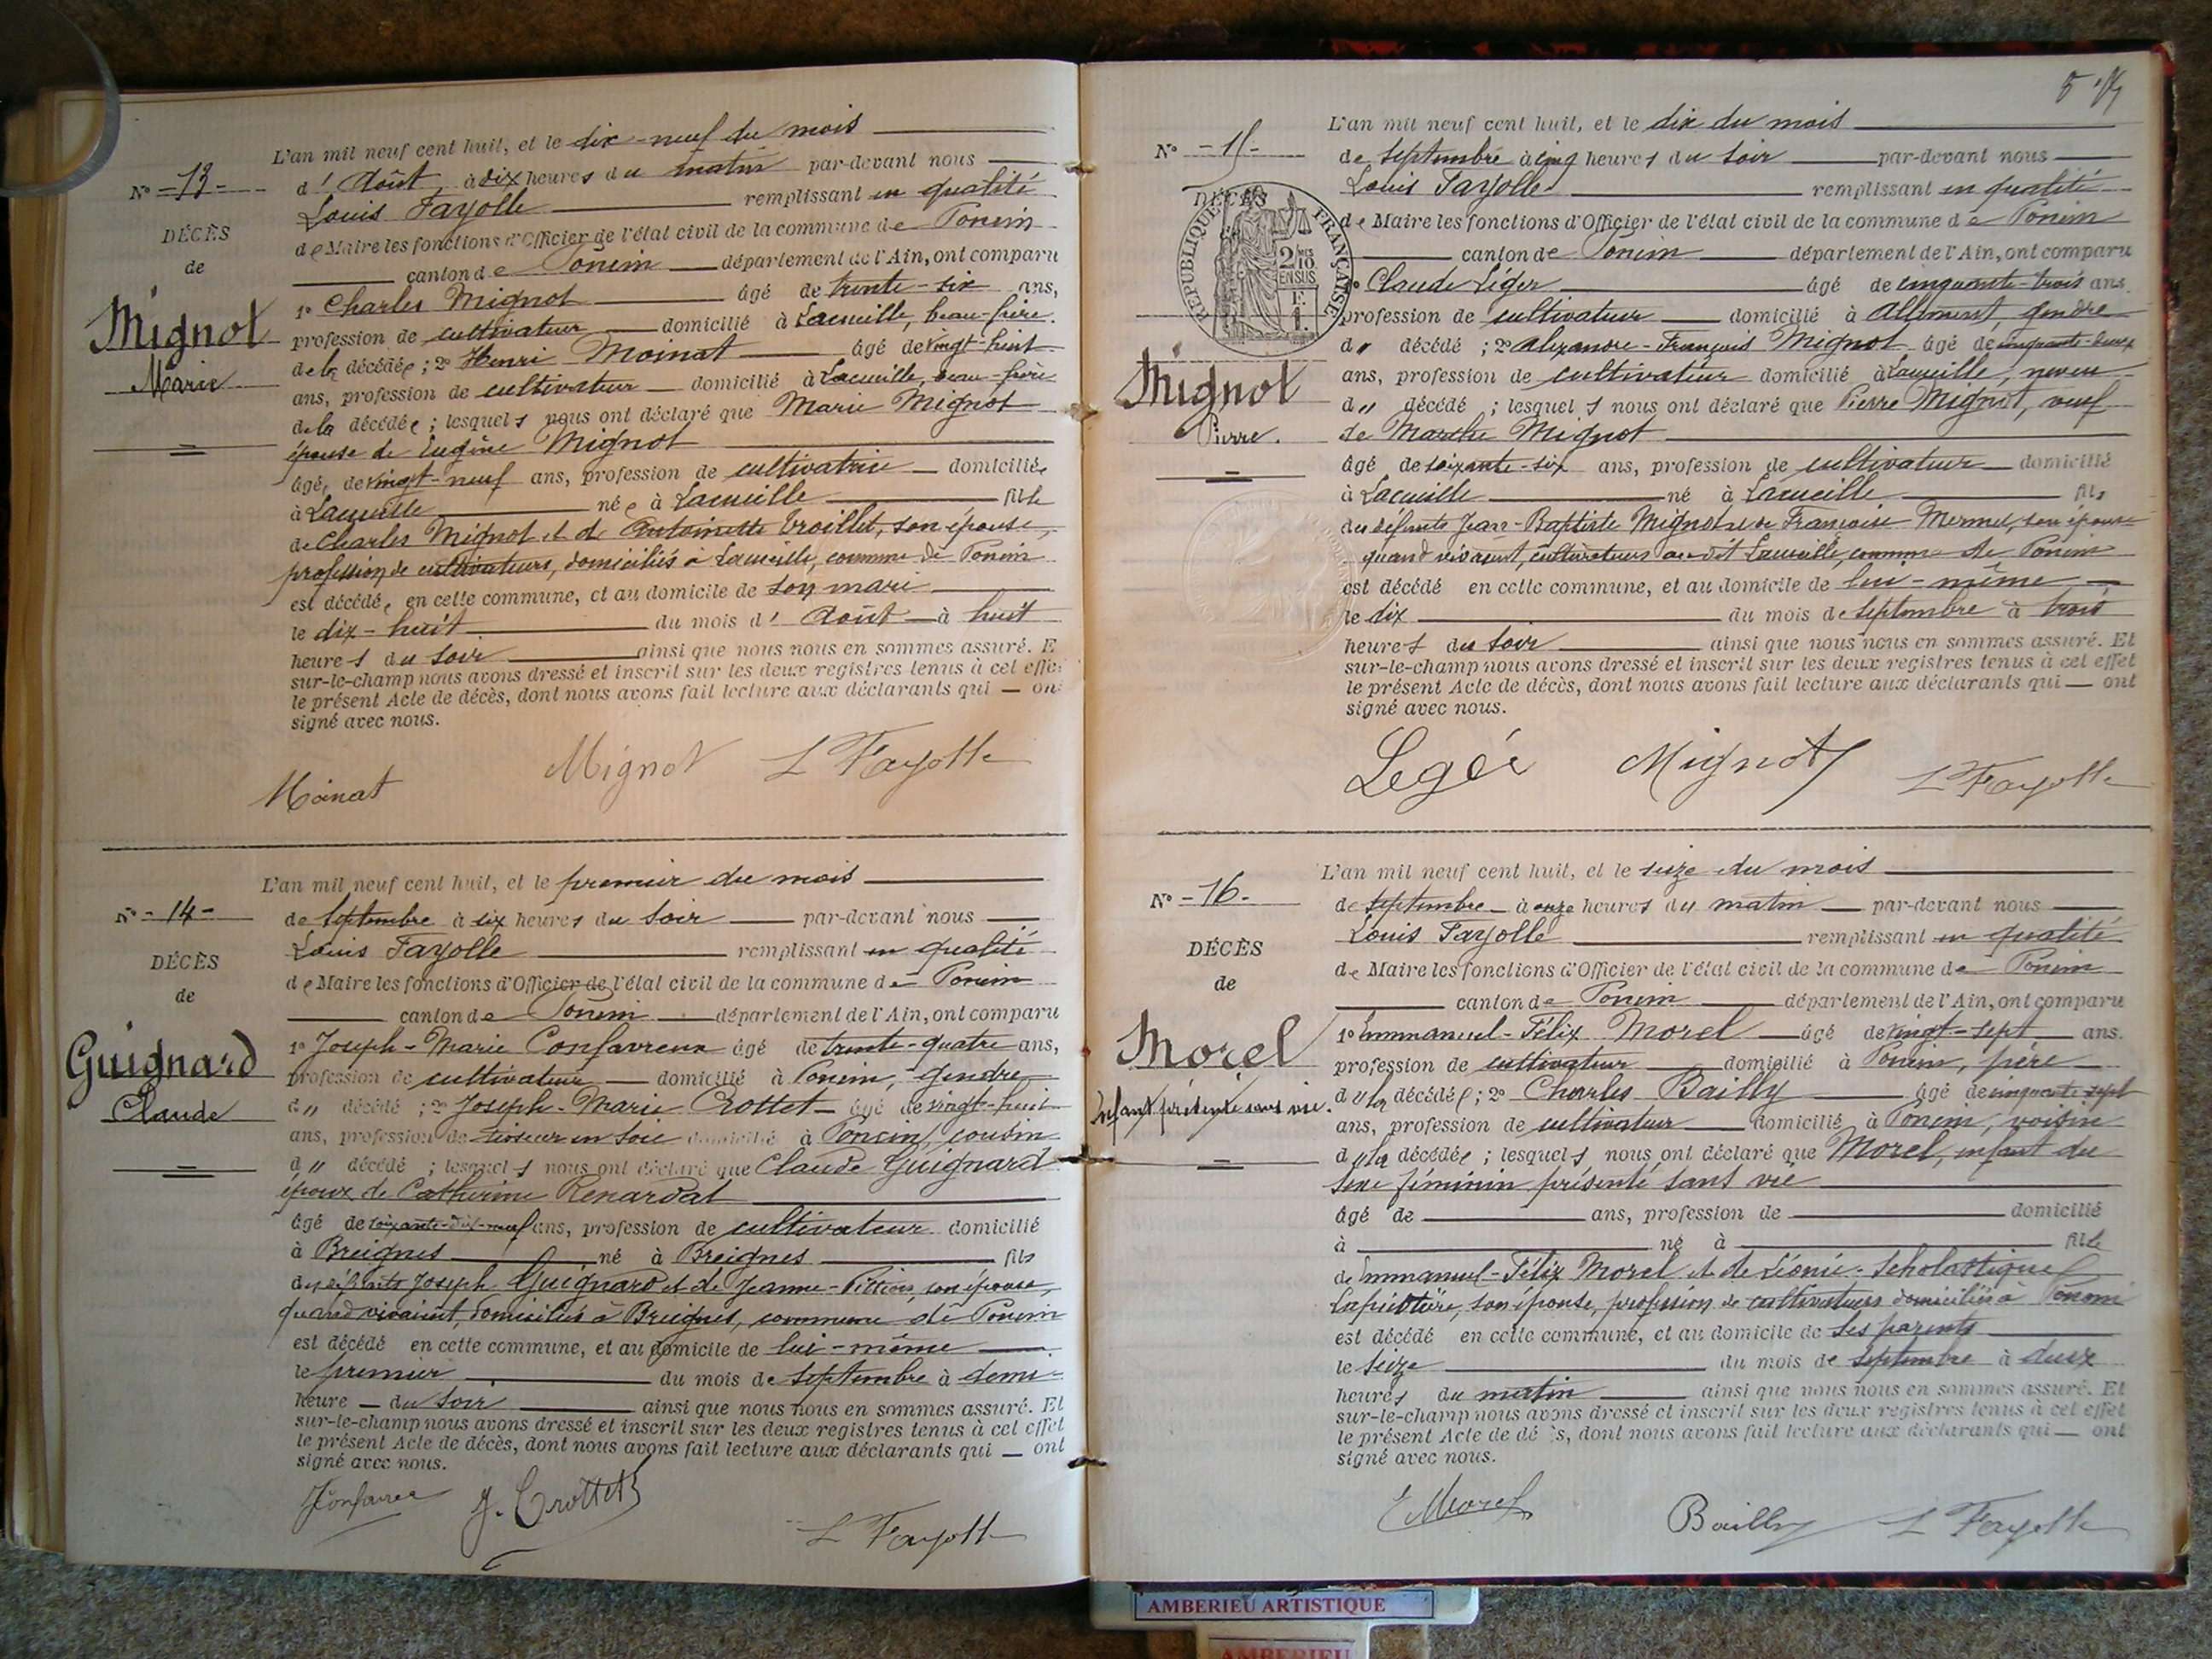 L'an mil neuf cent huit, et le dix-neuf du mois
N° -13-
d'Août, à dix heures du matin par-devant nous
Louis Fayolle remplissant en qualité
DÉCÈS
de Maire les fonctions d'Officier de l'état civil de la commune de Poncin
de
canton de Poncin département de l'Ain, ont comparu
1° Charles Mignot âgé de trente-six ans,
Mignot
Marie
profession de cultivateur domicilié à Lacueille, beau-frère
de la décédée ; 2° Henri Moinat âgé de vingt-huit
ans, profession de cultivateur domicilié à Lacueille, beau-frère
de la décédée ; lesquels nous ont déclaré que Marie Mignot
épouse de Eugène Mignot
âgée de vingt-neuf ans, profession de cultivatrice domiciliée
à Lacueille née à Lacueille fille
de Charles Mignot et de Antoinette Troillet, son épouse,
profession de cultivateurs, domiciliés à Lacueille, commune de Poncin
est décédée en cette commune, et au domicile de son mari
le dix-huit du mois d'Août à huit
heures du soir ainsi que nous nous en sommes assuré. E
sur-le-champ nous avons dressé et inscrit sur les deux registres tenus à cet effe
le présent Acte de décès, dont nous avons fait lecture aux déclarants qui — on
signé avec nous.
Moinat Mignot L Fayolle
L'an mil neuf cent huit, et le premier du mois
N° -14-
de Septembre à six heures du soir par-devant nous
Louis Fayolle remplissant en qualité
DÉCÈS
de Maire les fonctions d'Officier de l'état civil de la commune de Poncin
de
canton de Poncin département de l'Ain, ont comparu
1° Joseph-Marie Confavreux âgé de trente-quatre ans,
Guignard
Claude
profession de cultivateur domicilié à Poncin, gendre
d" décédé ; 2° Joseph-Marie Crottet âgé de vingt-huit
ans, profession de tisseur en soie domicilié à Poncin, cousin
d" décédé ; lesquels nous ont déclaré que Claude Guignard
époux de Catherine Renardat
âgé de soixante-dix-neuf ans, profession de cultivateur domicilié
à Breignes né à Breignes fils
des défunts Joseph Guignard et de Jeanne son épouse,
quand vivaient, domiciliés à Breignes, commune de Poncin
est décédé en cette commune, et au domicile de lui-même
le premier du mois de Septembre à demi-
heure — du soir ainsi que nous nous en sommes assuré. Et
sur-le-champ nous avons dressé et inscrit sur les deux registres tenus à cet effet
le présent Acte de décès, dont nous avons fait lecture aux déclarants qui — ont
signé avec nous.
J. Crottet L Fayolle
L'an mil neuf cent huit, et le dix du mois
N° -15-
de Septembre à cinq heures du soir par-devant nous
Louis Fayolle remplissant en qualité
DÉCÈS
RÉPUBLIQUE FRANÇAISE
2/10 EN SUS
de Maire les fonctions d'Officier de l'état civil de la commune de Poncin
canton de Poncin département de l'Ain, ont comparu
1° Claude Léger âgé de cinquante-trois ans.
profession de cultivateur domicilié à Allement, gendre
d" décédé ; 2° Alexandre-François Mignot âgé de cinquante-deux
Mignot
Pierre.
ans, profession de cultivateur domicilié à Lacueille, neveu
d" décédé ; lesquels nous ont déclaré que Pierre Mignot, veuf
de Marthe Mignot
âgé de soixante-six ans, profession de cultivateur domicilié
à Lacueille né à Lacueille fils
des défunts Jean-Baptiste Mignot et de Françoise Mermet, son épouse
quand vivaient, cultivateurs au dit Lacueille, commune de Poncin
est décédé en cette commune, et au domicile de lui-même
le dix du mois de Septembre à trois
heures du soir ainsi que nous nous en sommes assuré. Et
sur-le-champ nous avons dressé et inscrit sur les deux registres tenus à cet effet
le présent Acte de décès, dont nous avons fait lecture aux déclarants qui — ont
signé avec nous.
Legér Mignot L Fayolle
L'an mil neuf cent huit, et le seize du mois
N° -16-
de Septembre à onze heures du matin par-devant nous
Louis Fayolle remplissant en qualité
DÉCÈS
de Maire les fonctions d'Officier de l'état civil de la commune de Poncin
de
canton de Poncin département de l'Ain, ont comparu
1° Emmanuel-Félix Morel âgé de vingt-sept ans.
Morel
Enfant présenté sans vie.
profession de cultivateur domicilié à Poncin, père
de la décédée ; 2° Charles Bailly âgé de cinquante-sept
ans, profession de cultivateur domicilié à Poncin, voisin
de la décédée ; lesquels nous ont déclaré que Morel, enfant du
sexe féminin présenté sans vie
âgé de ans, profession de domicilié
à né à fille
de Emmanuel-Félix Morel et de Léonie-Scholastique
son épouse, profession de cultivateurs domiciliés à Poncin
est décédé en cette commune, et au domicile de ses parents
le seize du mois de Septembre à deux
heures du matin ainsi que nous nous en sommes assuré. Et
sur-le-champ nous avons dressé et inscrit sur les deux registres tenus à cet effet
le présent Acte de décès, dont nous avons fait lecture aux déclarants qui — ont
signé avec nous.
E Morel Bailly L Fayolle
AMBERIEU ARTISTIQUE
AMBERIEU